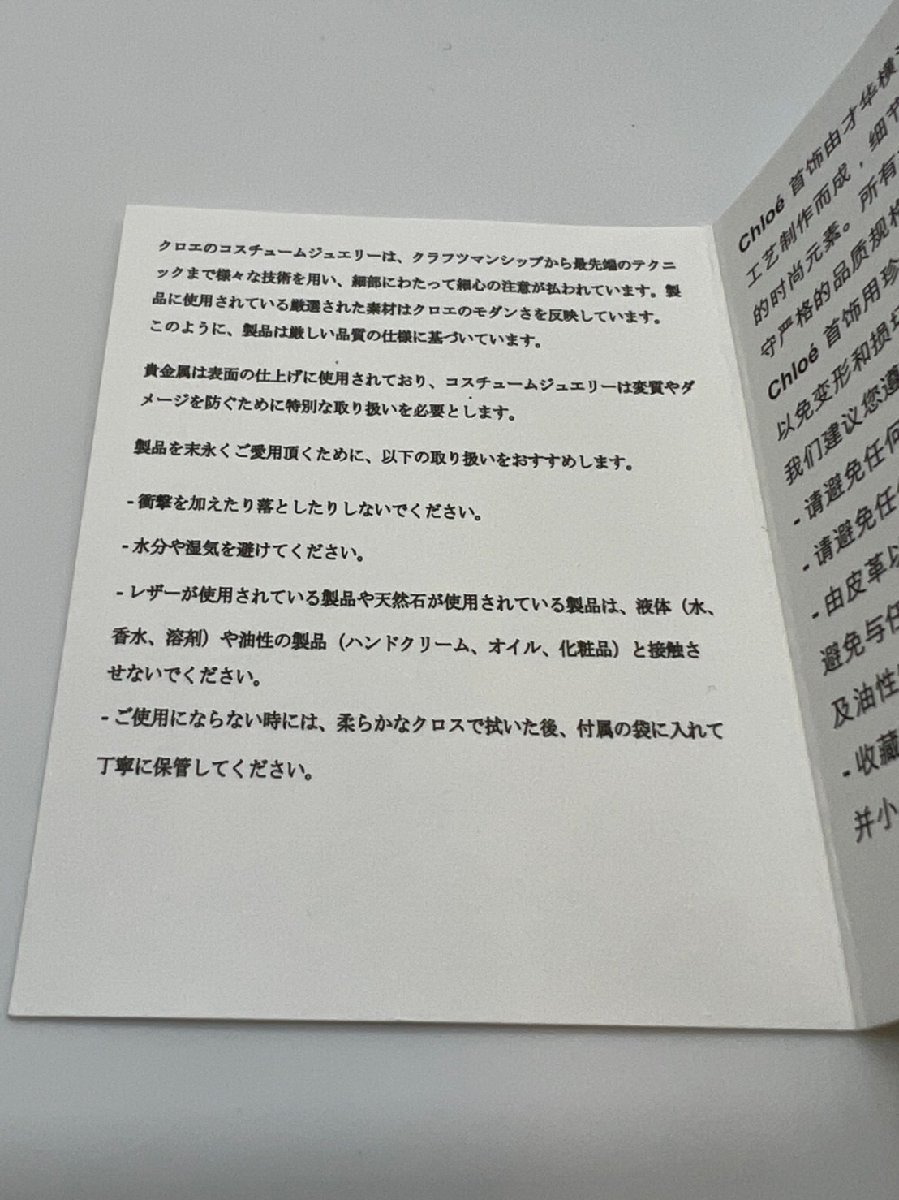 クロエのコスチュームジュエリーは、クラフツマンシップから最先端のテクニ
ックまで様々な技術を用い、細部にわたって細心の注意が払われています。製
品に使用されている厳選された素材はクロエのモダンさを反映しています。
このように、製品は厳しい品質の仕様に基づいています。
貴金属は表面の仕上げに使用されており、コスチュームジュエリーは変質やダ
メージを防ぐために特別な取り扱いを必要とします。
製品を末永くご愛用頂くために、以下の取り扱いをおすすめします。
- 衝撃を加えたり落としたりしないでください。
- 水分や湿気を避けてください。
- レザーが使用されている製品や天然石が使用されている製品は、液体（水、
香水、溶剤）や油性の製品（ハンドクリーム、オイル、化粧品）と接触さ
せないでください。
- ご使用にならない時には、柔らかなクロスで拭いた後、付属の袋に入れて
丁寧に保管してください。
Chloé 首饰由才华横
工艺制作而成，细节
的时尚元素。所有
守严格的品质规格
Chloé 首饰用珍
以免变形和损坏
我们建议您遵
- 请避免任何
- 请避免任
- 由皮革以
避免与任
及油性
- 收藏
并小